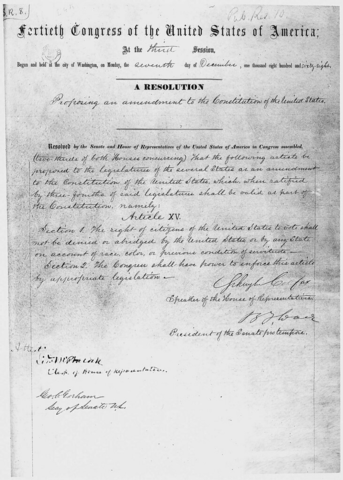 (R. 8.)
Fortieth Congress of the United States of America;
At the third Session,
Begun and held at the city of Washington, on Monday, the seventh day of December, one thousand eight hundred and sixty-eight.
A RESOLUTION
Proposing an amendment to the Constitution of the United States.
Resolved by the Senate and House of Representatives of the United States of America in Congress assembled,
(two-thirds of both Houses concurring) That the following article be
proposed to the legislatures of the several States as an amendment
to the Constitution of the United States, which, when ratified
by three-fourths of said legislatures shall be valid as part of
the Constitution, namely:
Article XV.
Section 1. The right of citizens of the United States to vote shall
not be denied or abridged by the United States or by any State
on account of race, color, or previous condition of servitude.
Section 2. The Congress shall have power to enforce this article
by appropriate legislation.
Schuyler Colfax
Speaker of the House of Representatives.
B F Wade
President of the Senate pro tempore.
Attest:
Clerk of House of Representatives.
Geo. C. Gorham
Secy of Senate U.S.